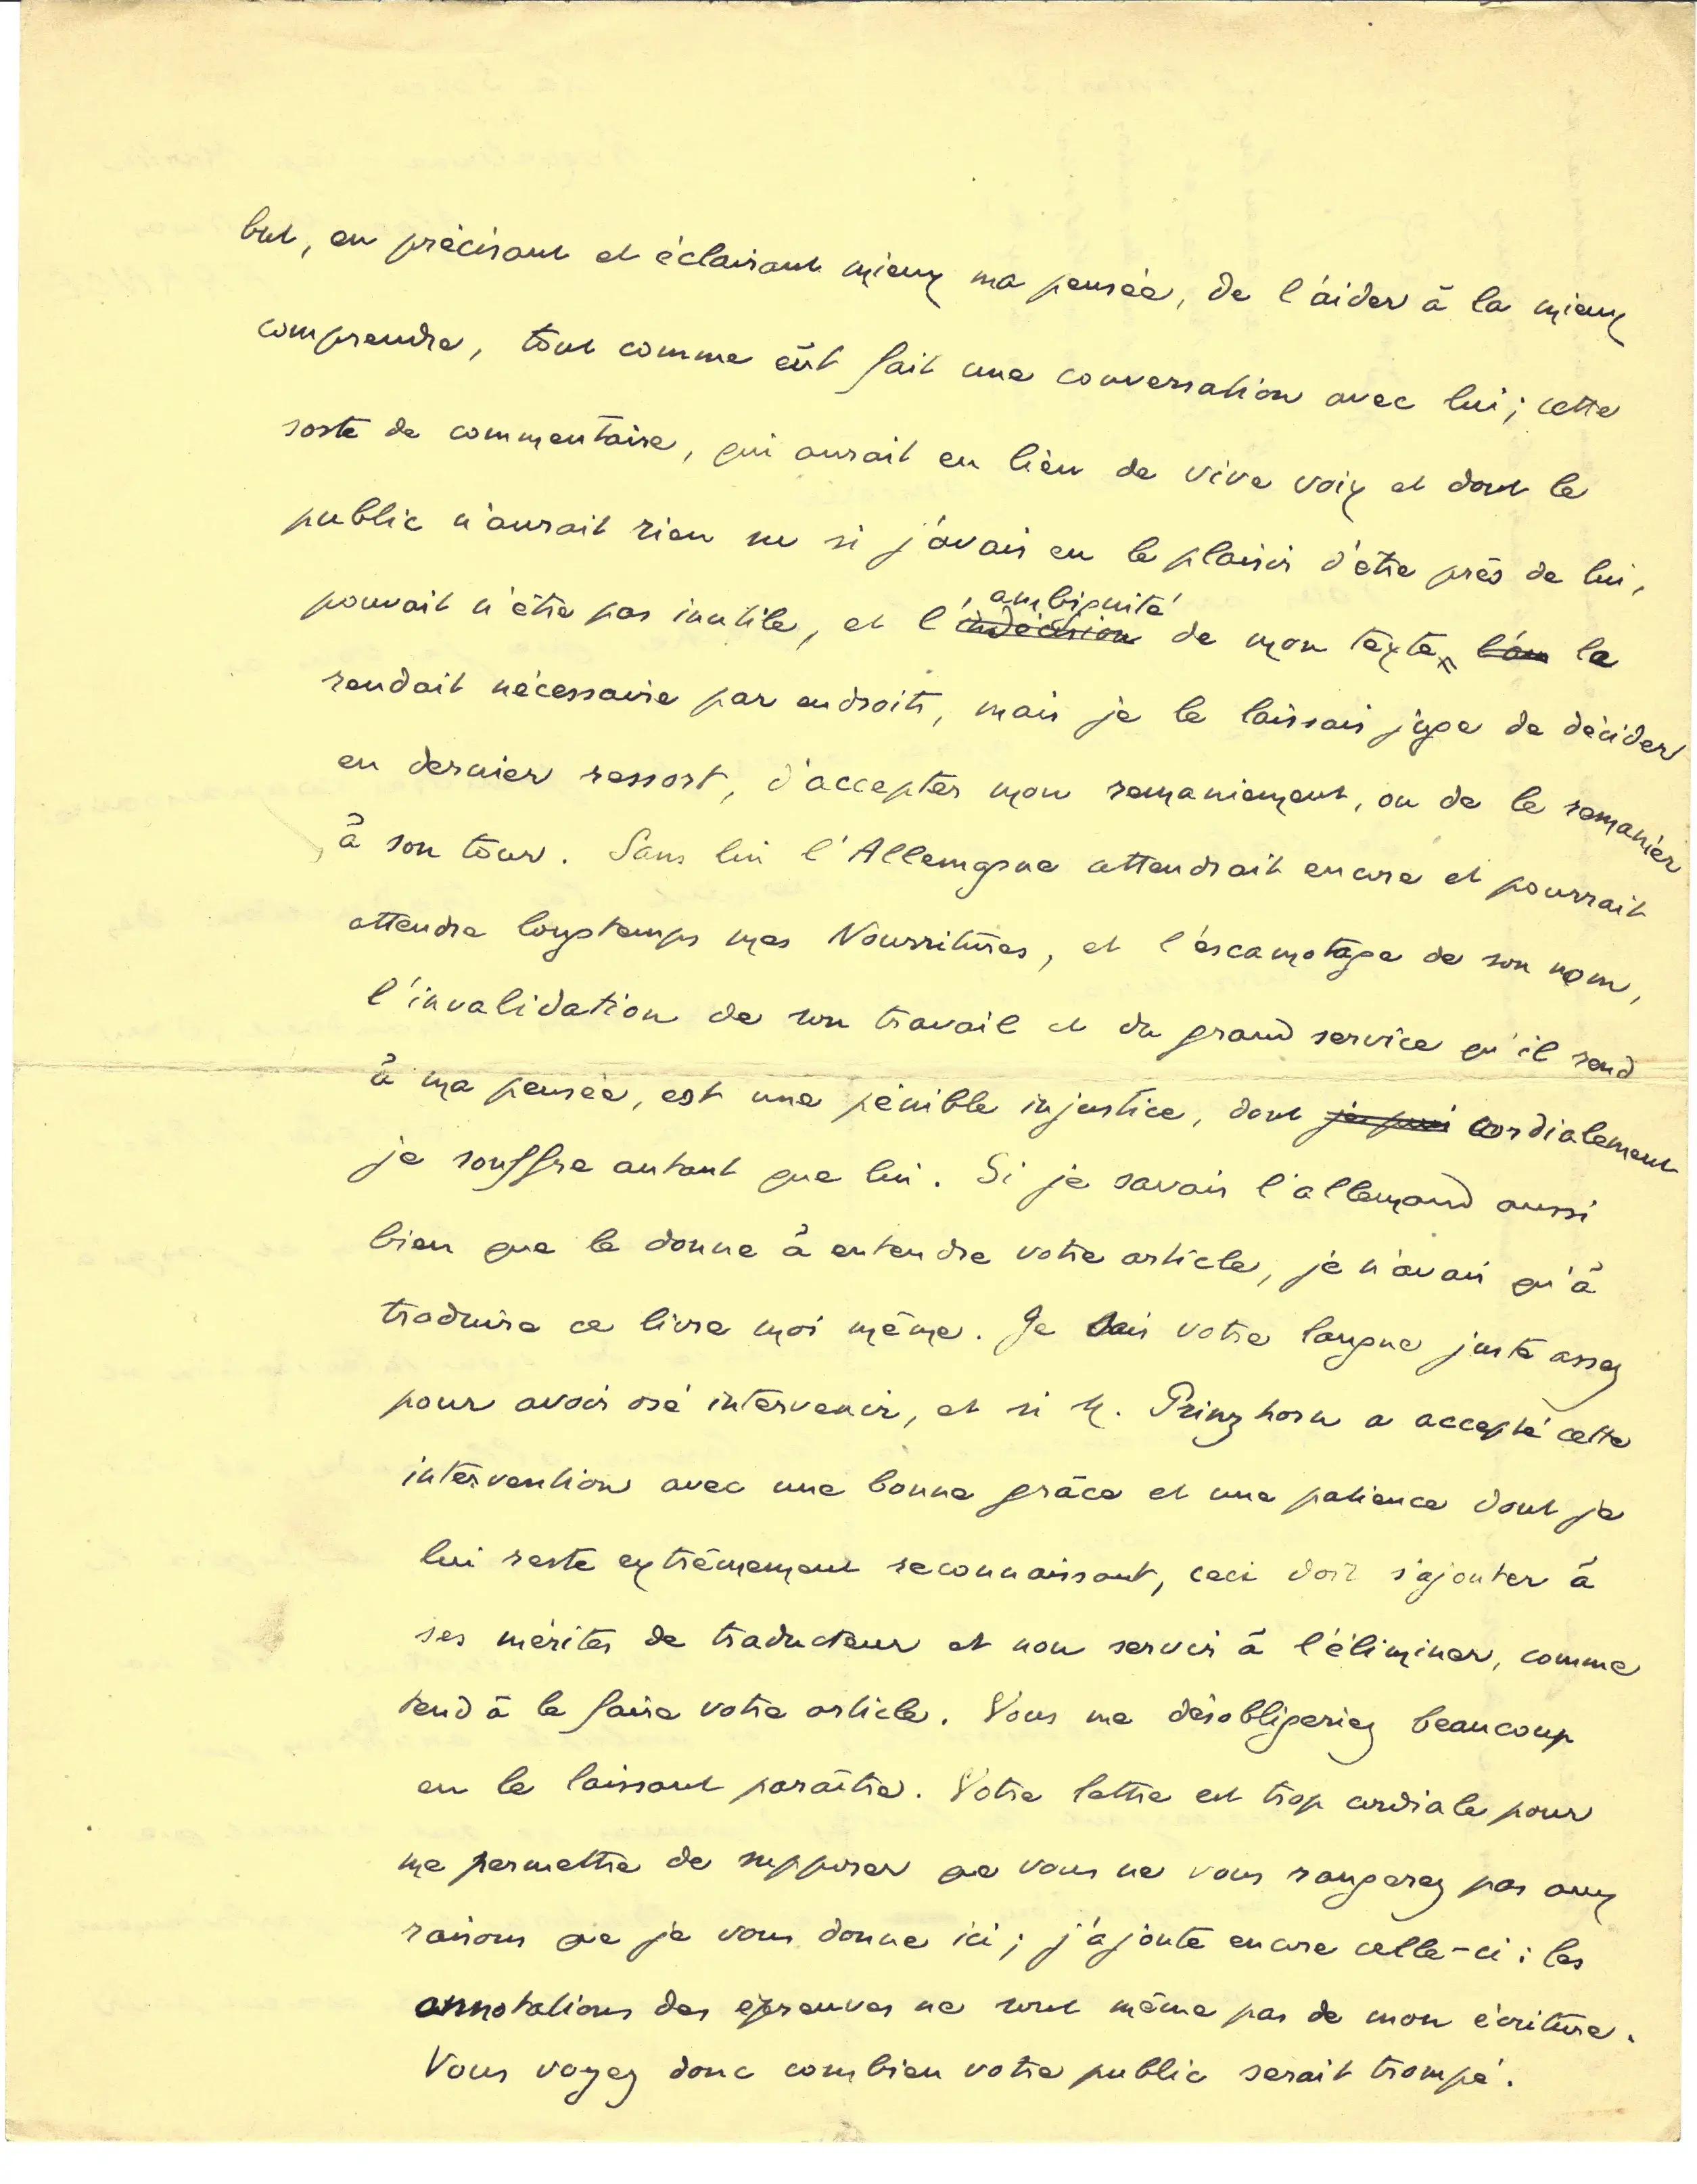 but, en précisant et éclairant mieux ma pensée, de l'aider à la mieux
comprendre, tout comme eût fait une conversation avec lui ; cette
sorte de commentaire, qui aurait eu lieu de vive voix et dont le
public n'aurait rien su si j'avais eu le plaisir d'être près de lui,
pouvait n'être pas inutile, et l'indécision ambiguité de mon texte l'on le
rendait nécessaire par endroits, mais je le laissais juge de décider
en dernier ressort, d'accepter mon remaniement, ou de le remanier
à son tour. Sans lui l'Allemagne attendrait encore et pourrait
attendre longtemps mes Nourritures, et l'escamotage de son nom,
l'invalidation de son travail et du grand service qu'il rend
à ma pensée, est une pénible injustice, dont je puis cordialement
je souffre autant que lui. Si je savais l'allemand aussi
bien que le donne à entendre votre article, je n'avais qu'à
traduire ce livre moi même. Je sais votre langue juste assez
pour avoir osé intervenir, et si M. Prinzhorn a accepté cette
intervention avec une bonne grâce et une patience dont je
lui reste extrêmement reconnaissant, ceci doit s'ajouter à
ses mérites de traducteur et non servir à l'éliminer, comme
tend à le faire votre article. Vous me désobligeriez beaucoup
en le laissant paraître. Votre lettre est trop cordiale pour
me permettre de supposer que vous ne vous rangerez pas aux
raisons que je vous donne ici ; j'ajoute encore celle-ci : les
annotations des épreuves ne sont même pas de mon écriture.
Vous voyez donc combien votre public serait trompé.